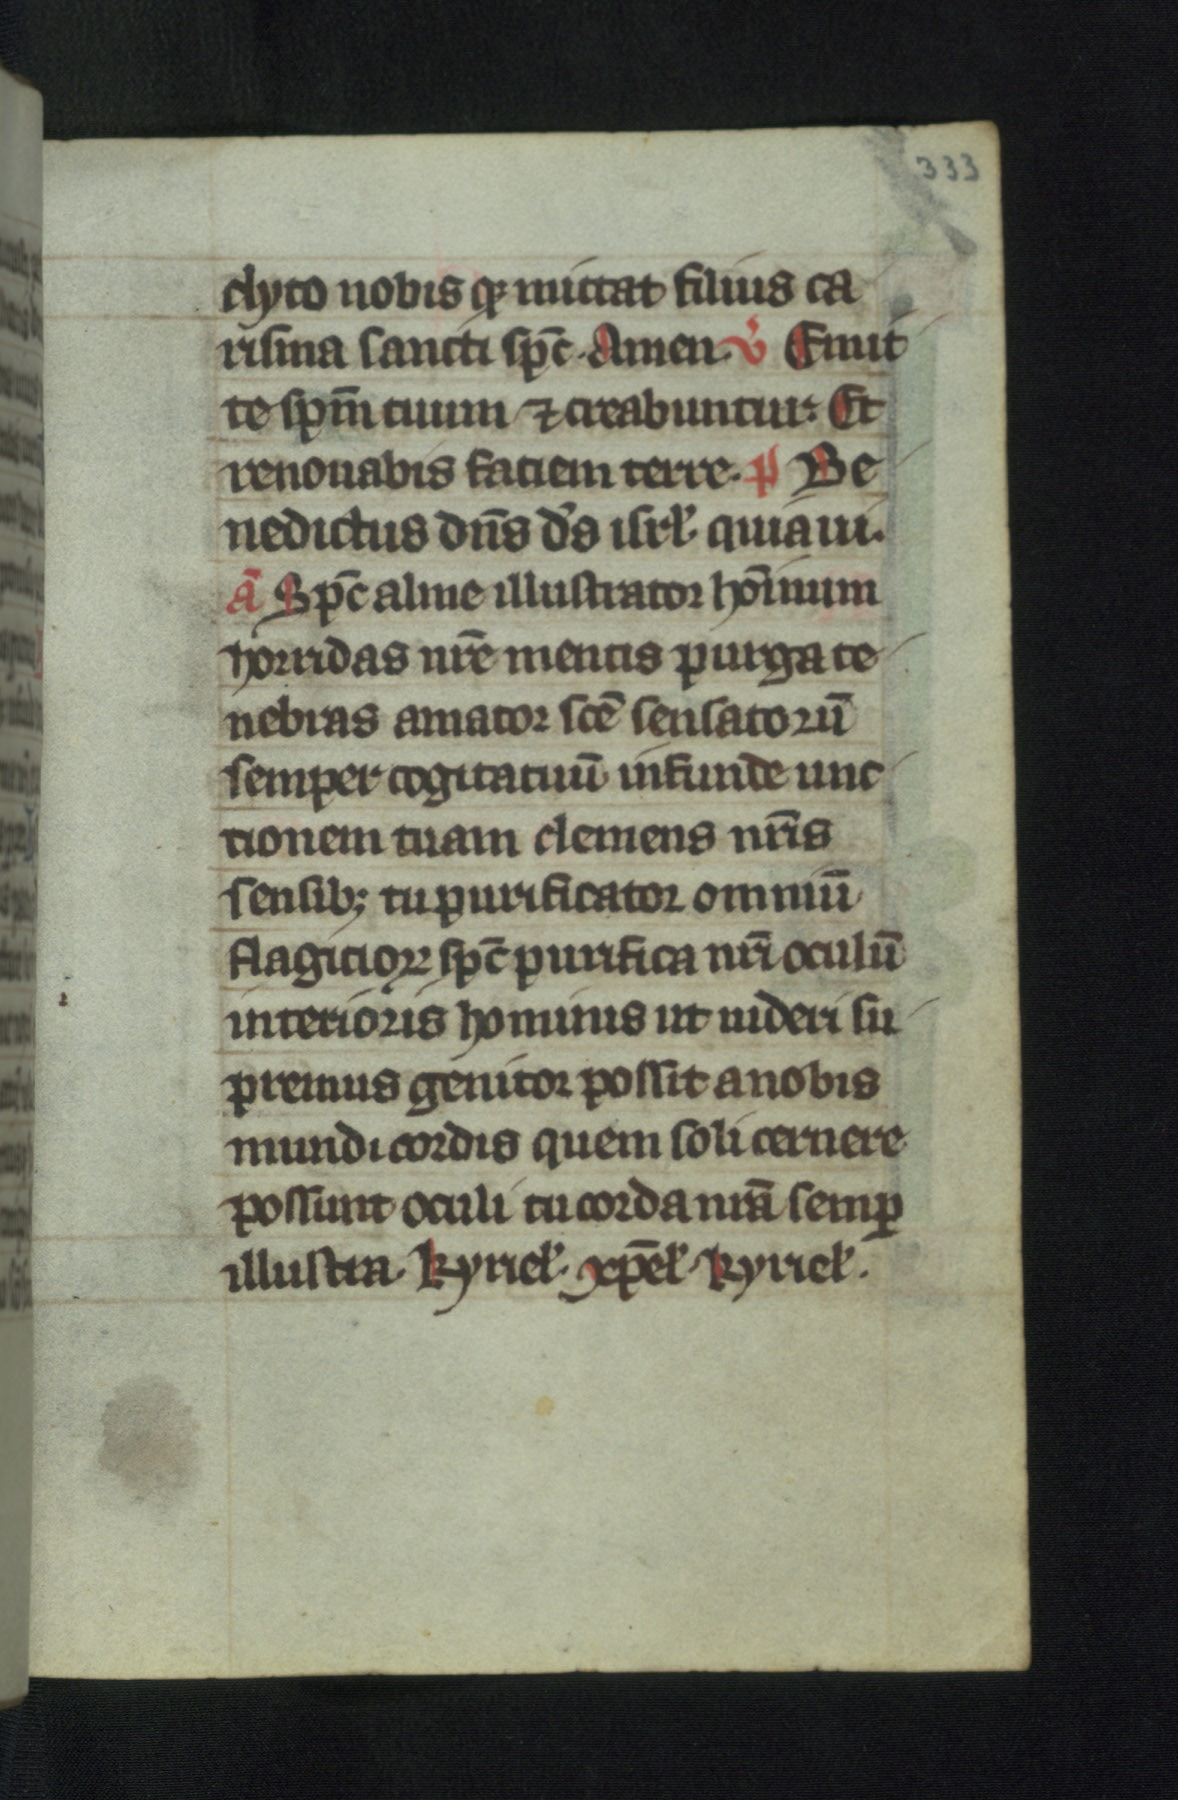 333
clyto nobis qꝫ mittat filius ca
risma sancti sp̄c. Amen. v̄ Emit
te sp̄m tuum ⁊ creabuntur. Et
renouabis faciem terre. p̄ Be
nedictus dn̄s ds̄ isrł. quia ui.
ā Sp̄c alme illustrator hoīnum
horridas nr̄e mentis purga te
nebras amator scē sensatorū
semper cogitatuū infunde unc
tionem tuam clemens nr̄is
sensibꝫ tu purificator omniū
flagicioꝝ sp̄c purifica nr̄i oculū
interioris hominis ut uideri su
premus genitor possit a nobis
mundi cordis quem soli cernere
possunt oculi tu corda nr̄a semꝑ
illustra. kyrieł. xp̄eł. kyrieł.